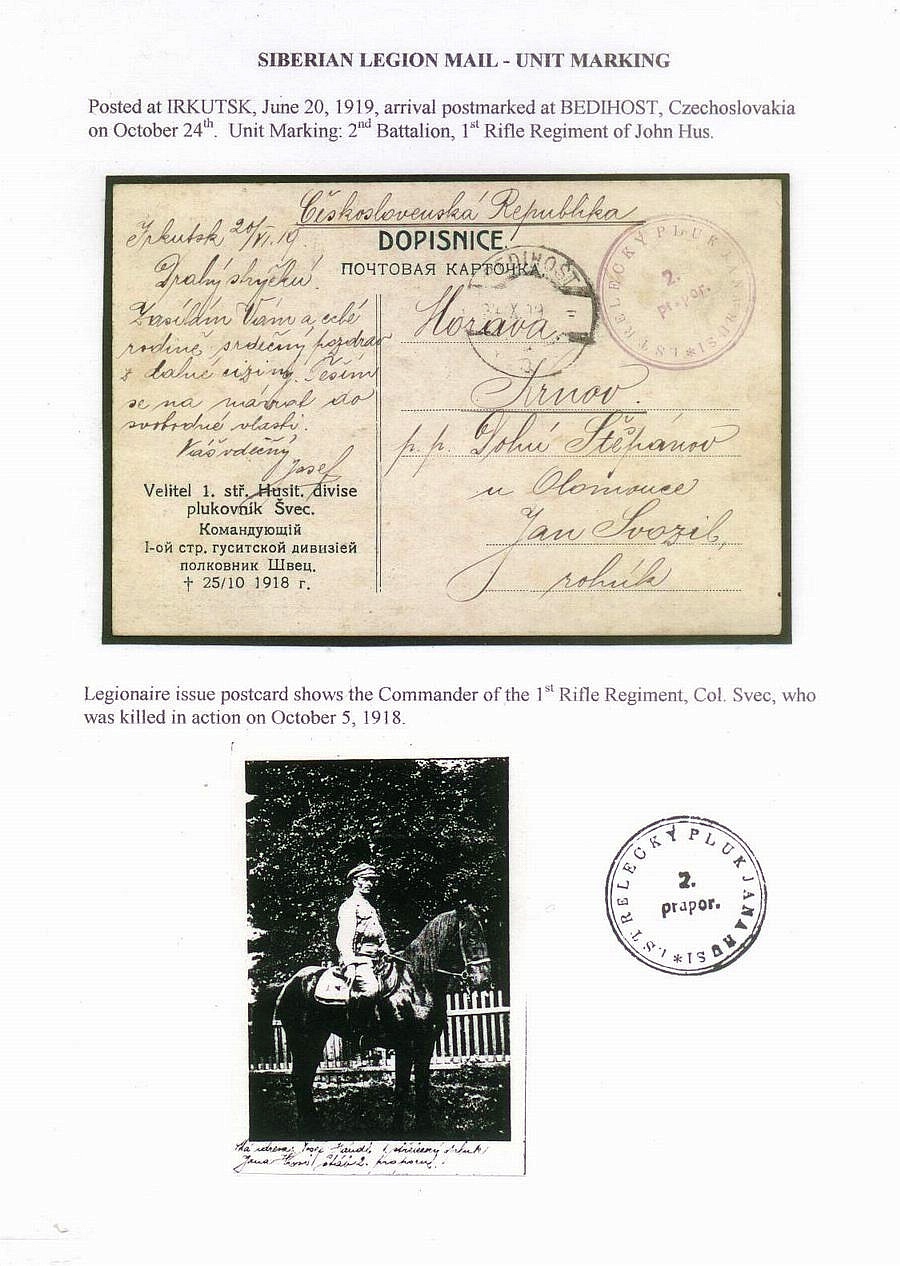 SIBERIAN LEGION MAIL - UNIT MARKING
Posted at IRKUTSK, June 20, 1919, arrival postmarked at BEDIHOST, Czechoslovakia
on October 24th. Unit Marking: 2nd Battalion, 1st Rifle Regiment of John Hus.
Československá Republika
Irkutsk 20/VI 19.
DOPISNICE.
ПОЧТОВАЯ КАРТОЧКА.
BEDIHOŠT
STRELECKÝ PLUK JANA HUSI *
2.
prapor.
Drahý strýčku!
Zasílám Vám a celé
rodině srdečný pozdrav
z dalné ciziny. Těším
se na návrat do
svobodné vlasti.
Váš vděčný
Josef
Velitel 1. stř. Husit. divise
plukovník Švec.
Командующій
I-ой стр. гуситской дивизіей
полковник Швец.
† 25/10 1918 г.
Morava
Krnov.
p. p. Dolní Štěpánov
u Olomouce
Jan Svozil,
rolník
Legionaire issue postcard shows the Commander of the 1st Rifle Regiment, Col. Svec, who
was killed in action on October 5, 1918.
STRELECKÝ PLUK JANA HUSI *
2.
prapor.
Má adresa: Josef 1. střelecký pluk
Jana Husi 2.